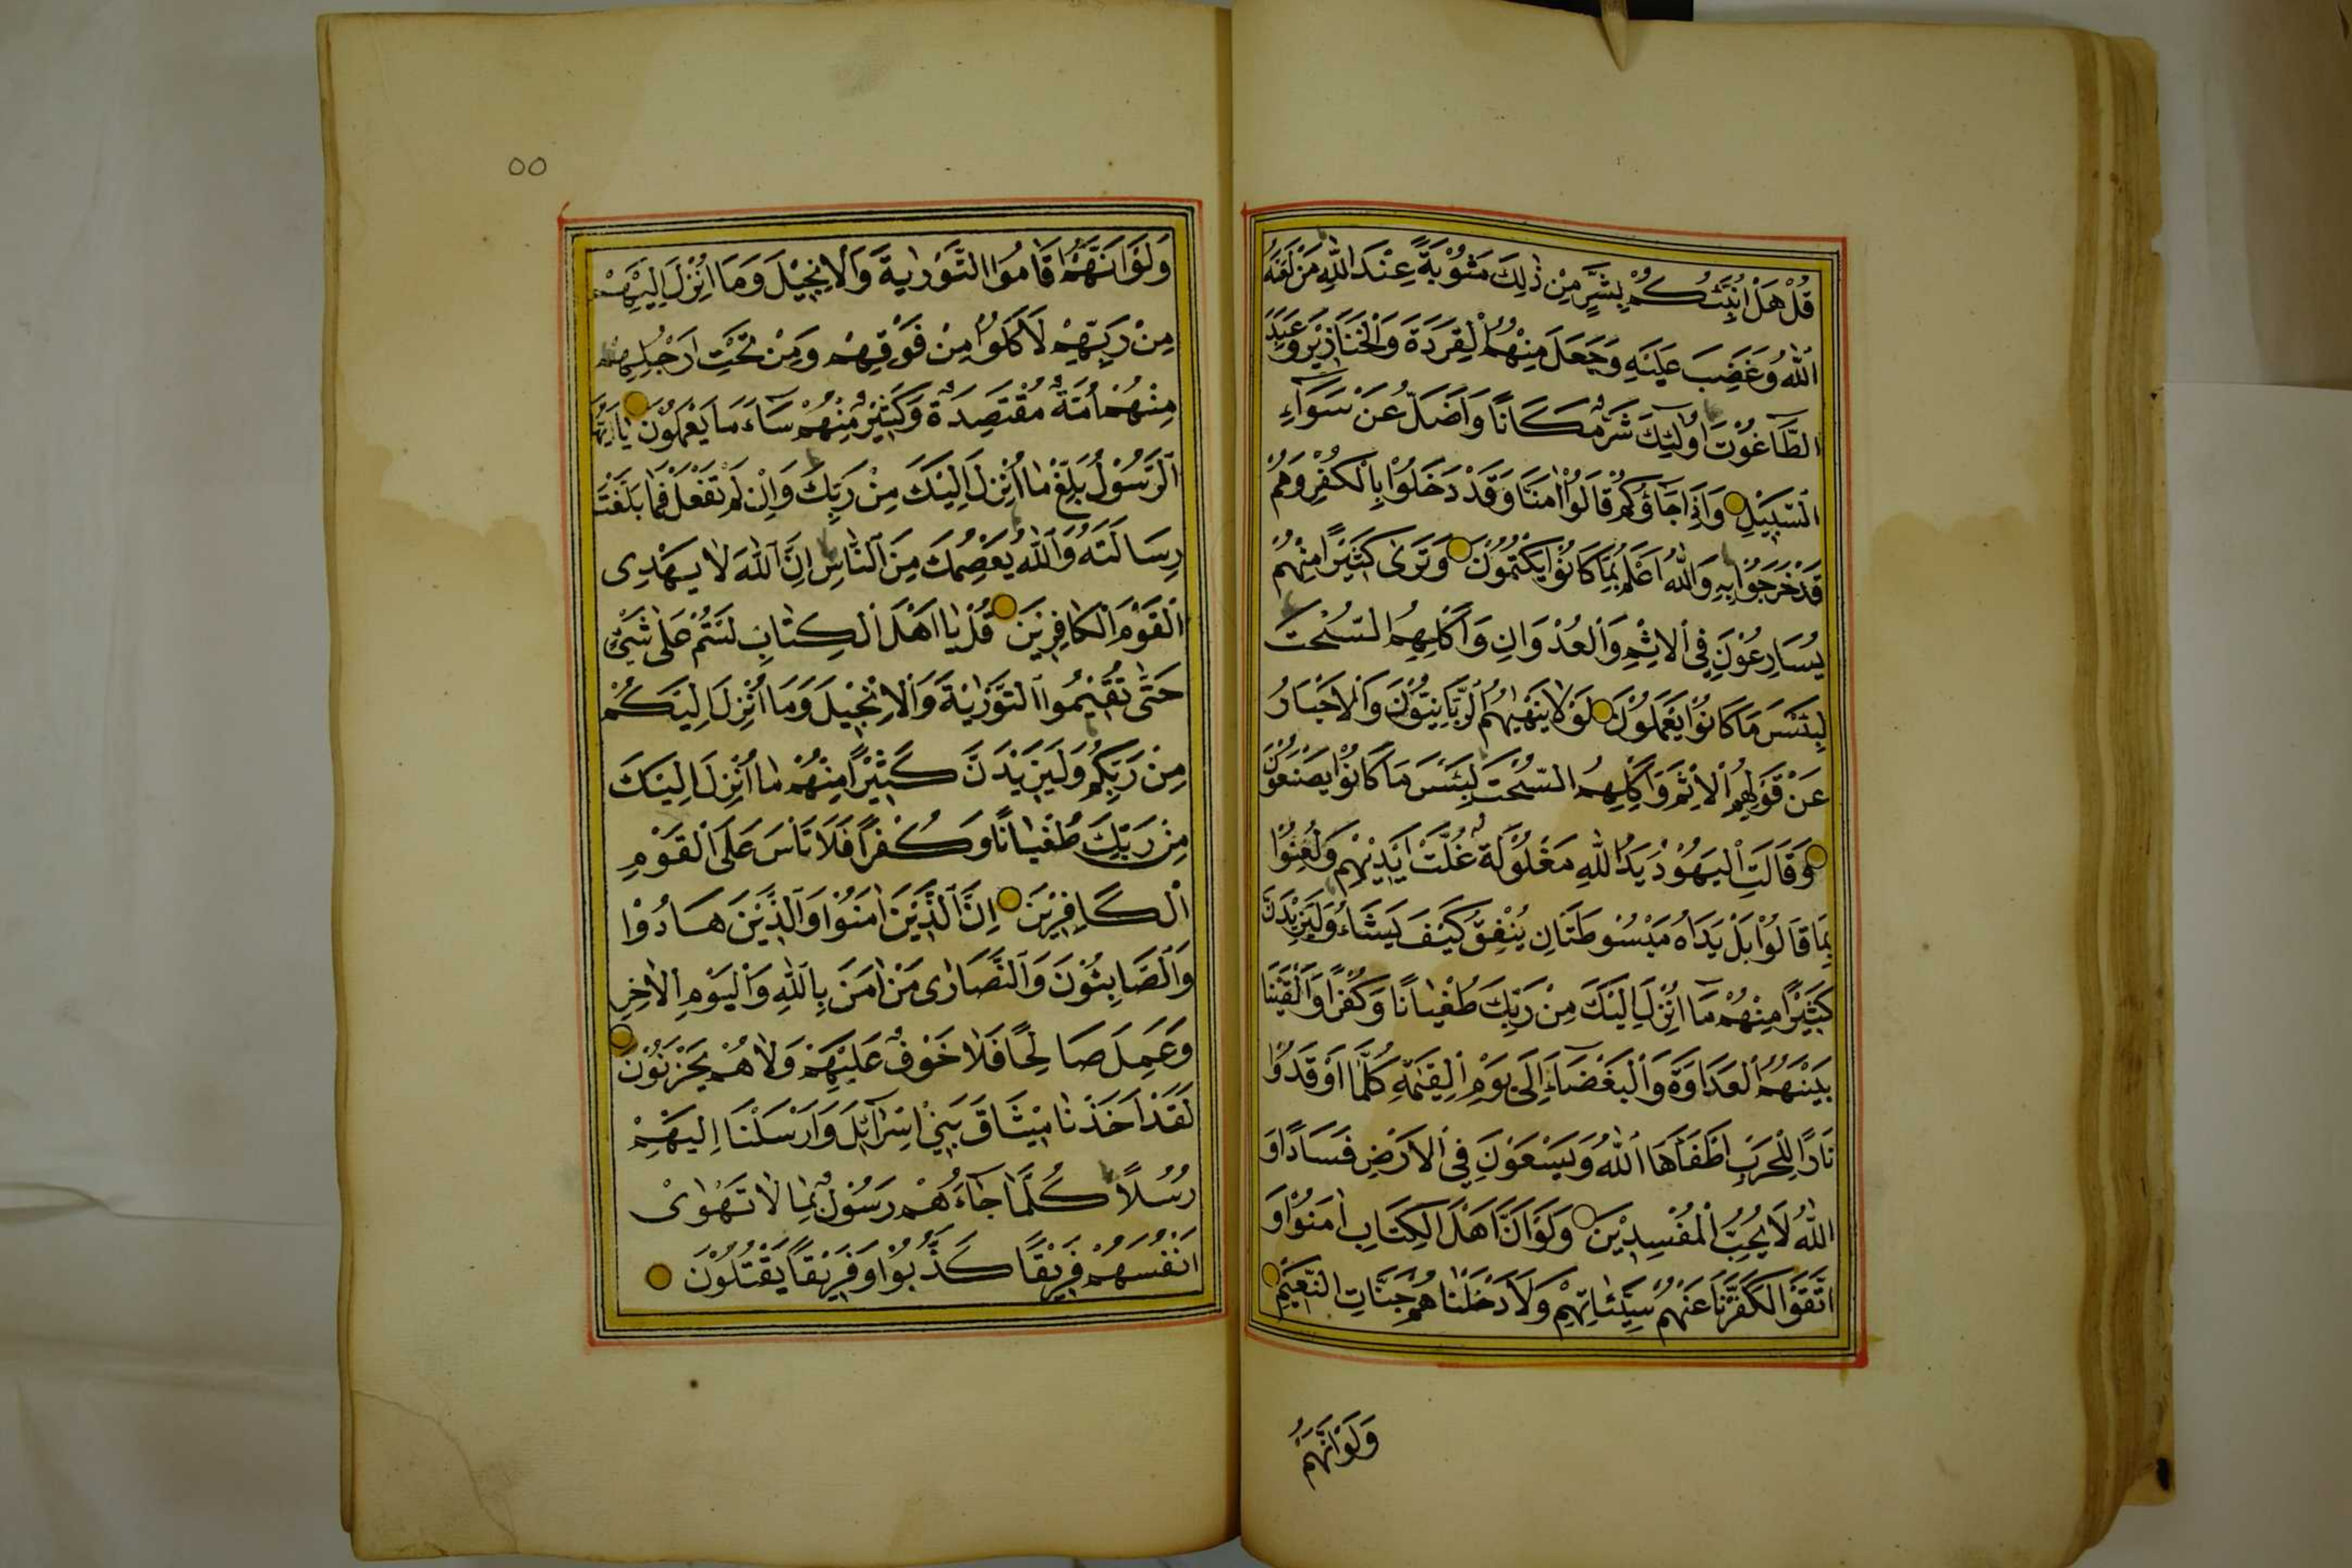 قُلْ هَلْ اُنَبِّئُكُمْ بِشَرٍّ مِنْ ذٰلِكَ مَثُوْبَةً عِنْدَ اللّٰهِ مَنْ لَعَنَهُ
اللّٰهُ وَغَضِبَ عَلَيْهِ وَجَعَلَ مِنْهُمُ الْقِرَدَةَ وَالْخَنَازِيْرَ وَعَبَدَ
الطَّاغُوْتَ اُولٰئِكَ شَرٌّ مَكَانًا وَاَضَلُّ عَنْ سَوَآءِ
السَّبِيْلِ وَاِذَا جَآؤُكُمْ قَالُوْا اٰمَنَّا وَقَدْ دَخَلُوْا بِالْكُفْرِ وَهُمْ
قَدْ خَرَجُوْا بِهِ وَاللّٰهُ اَعْلَمُ بِمَا كَانُوْا يَكْتُمُوْنَ وَتَرٰى كَثِيْرًا مِنْهُمْ
يُسَارِعُوْنَ فِي الْاِثْمِ وَالْعُدْوَانِ وَاَكْلِهِمُ السُّحْتَ
لَبِئْسَ مَا كَانُوْا يَعْمَلُوْنَ لَوْلَا يَنْهٰيهُمُ الرَّبَّانِيُّوْنَ وَالْاَحْبَارُ
عَنْ قَوْلِهِمُ الْاِثْمَ وَاَكْلِهِمُ السُّحْتَ لَبِئْسَ مَا كَانُوْا يَصْنَعُوْنَ
وَقَالَتِ الْيَهُوْدُ يَدُ اللّٰهِ مَغْلُوْلَةٌ غُلَّتْ اَيْدِيْهِمْ وَلُعِنُوْا
بِمَا قَالُوْا بَلْ يَدَاهُ مَبْسُوطَتَانِ يُنْفِقُ كَيْفَ يَشَآءُ وَلَيَزِيْدَنَّ
كَثِيْرًا مِنْهُمْ مَآ اُنْزِلَ اِلَيْكَ مِنْ رَبِّكَ طُغْيَانًا وَكُفْرًا وَاَلْقَيْنَا
بَيْنَهُمُ الْعَدَاوَةَ وَالْبَغْضَآءَ اِلٰى يَوْمِ الْقِيٰمَةِ كُلَّمَا اَوْقَدُوْا
نَارًا لِلْحَرْبِ اَطْفَاَهَا اللّٰهُ وَيَسْعَوْنَ فِي الْاَرْضِ فَسَادًا وَ
اللّٰهُ لَا يُحِبُّ الْمُفْسِدِيْنَ وَلَوْ اَنَّ اَهْلَ الْكِتَابِ اٰمَنُوْا وَ
اتَّقَوْا لَكَفَّرْنَا عَنْهُمْ سَيِّئَاتِهِمْ وَلَاَدْخَلْنَاهُمْ جَنَّاتِ النَّعِيْمِ
وَلَوْ اَنَّهُمْ
٥٥
وَلَوْ اَنَّهُمْ اَقَامُوا التَّوْرٰيةَ وَالْاِنْجِيْلَ وَمَا اُنْزِلَ اِلَيْهِمْ
مِنْ رَبِّهِمْ لَاَكَلُوْا مِنْ فَوْقِهِمْ وَمِنْ تَحْتِ اَرْجُلِهِمْ
مِنْهُمْ اُمَّةٌ مُقْتَصِدَةٌ وَكَثِيْرٌ مِنْهُمْ سَآءَ مَا يَعْمَلُوْنَ يَا اَيُّهَا
الرَّسُوْلُ بَلِّغْ مَا اُنْزِلَ اِلَيْكَ مِنْ رَبِّكَ وَاِنْ لَمْ تَفْعَلْ فَمَا بَلَّغْتَ
رِسَالَتَهُ وَاللّٰهُ يَعْصِمُكَ مِنَ النَّاسِ اِنَّ اللّٰهَ لَا يَهْدِى
الْقَوْمَ الْكَافِرِيْنَ قُلْ يَا اَهْلَ الْكِتَابِ لَسْتُمْ عَلٰى شَيْءٍ
حَتّٰى تُقِيْمُوا التَّوْرٰيةَ وَالْاِنْجِيْلَ وَمَا اُنْزِلَ اِلَيْكُمْ
مِنْ رَبِّكُمْ وَلَيَزِيْدَنَّ كَثِيْرًا مِنْهُمْ مَا اُنْزِلَ اِلَيْكَ
مِنْ رَبِّكَ طُغْيَانًا وَكُفْرًا فَلَا تَاْسَ عَلَى الْقَوْمِ
الْكَافِرِيْنَ اِنَّ الَّذِيْنَ اٰمَنُوْا وَالَّذِيْنَ هَادُوْا
وَالصَّابِئُوْنَ وَالنَّصَارٰى مَنْ اٰمَنَ بِاللّٰهِ وَالْيَوْمِ الْاٰخِرِ
وَعَمِلَ صَالِحًا فَلَا خَوْفٌ عَلَيْهِمْ وَلَا هُمْ يَحْزَنُوْنَ
لَقَدْ اَخَذْنَا مِيْثَاقَ بَنِيْ اِسْرَآئِلَ وَاَرْسَلْنَا اِلَيْهِمْ
رُسُلًا كُلَّمَا جَآءَهُمْ رَسُوْلٌ بِمَا لَا تَهْوٰىْ
اَنْفُسُهُمْ فَرِيْقًا كَذَّبُوْا وَفَرِيْقًا يَقْتُلُوْنَ